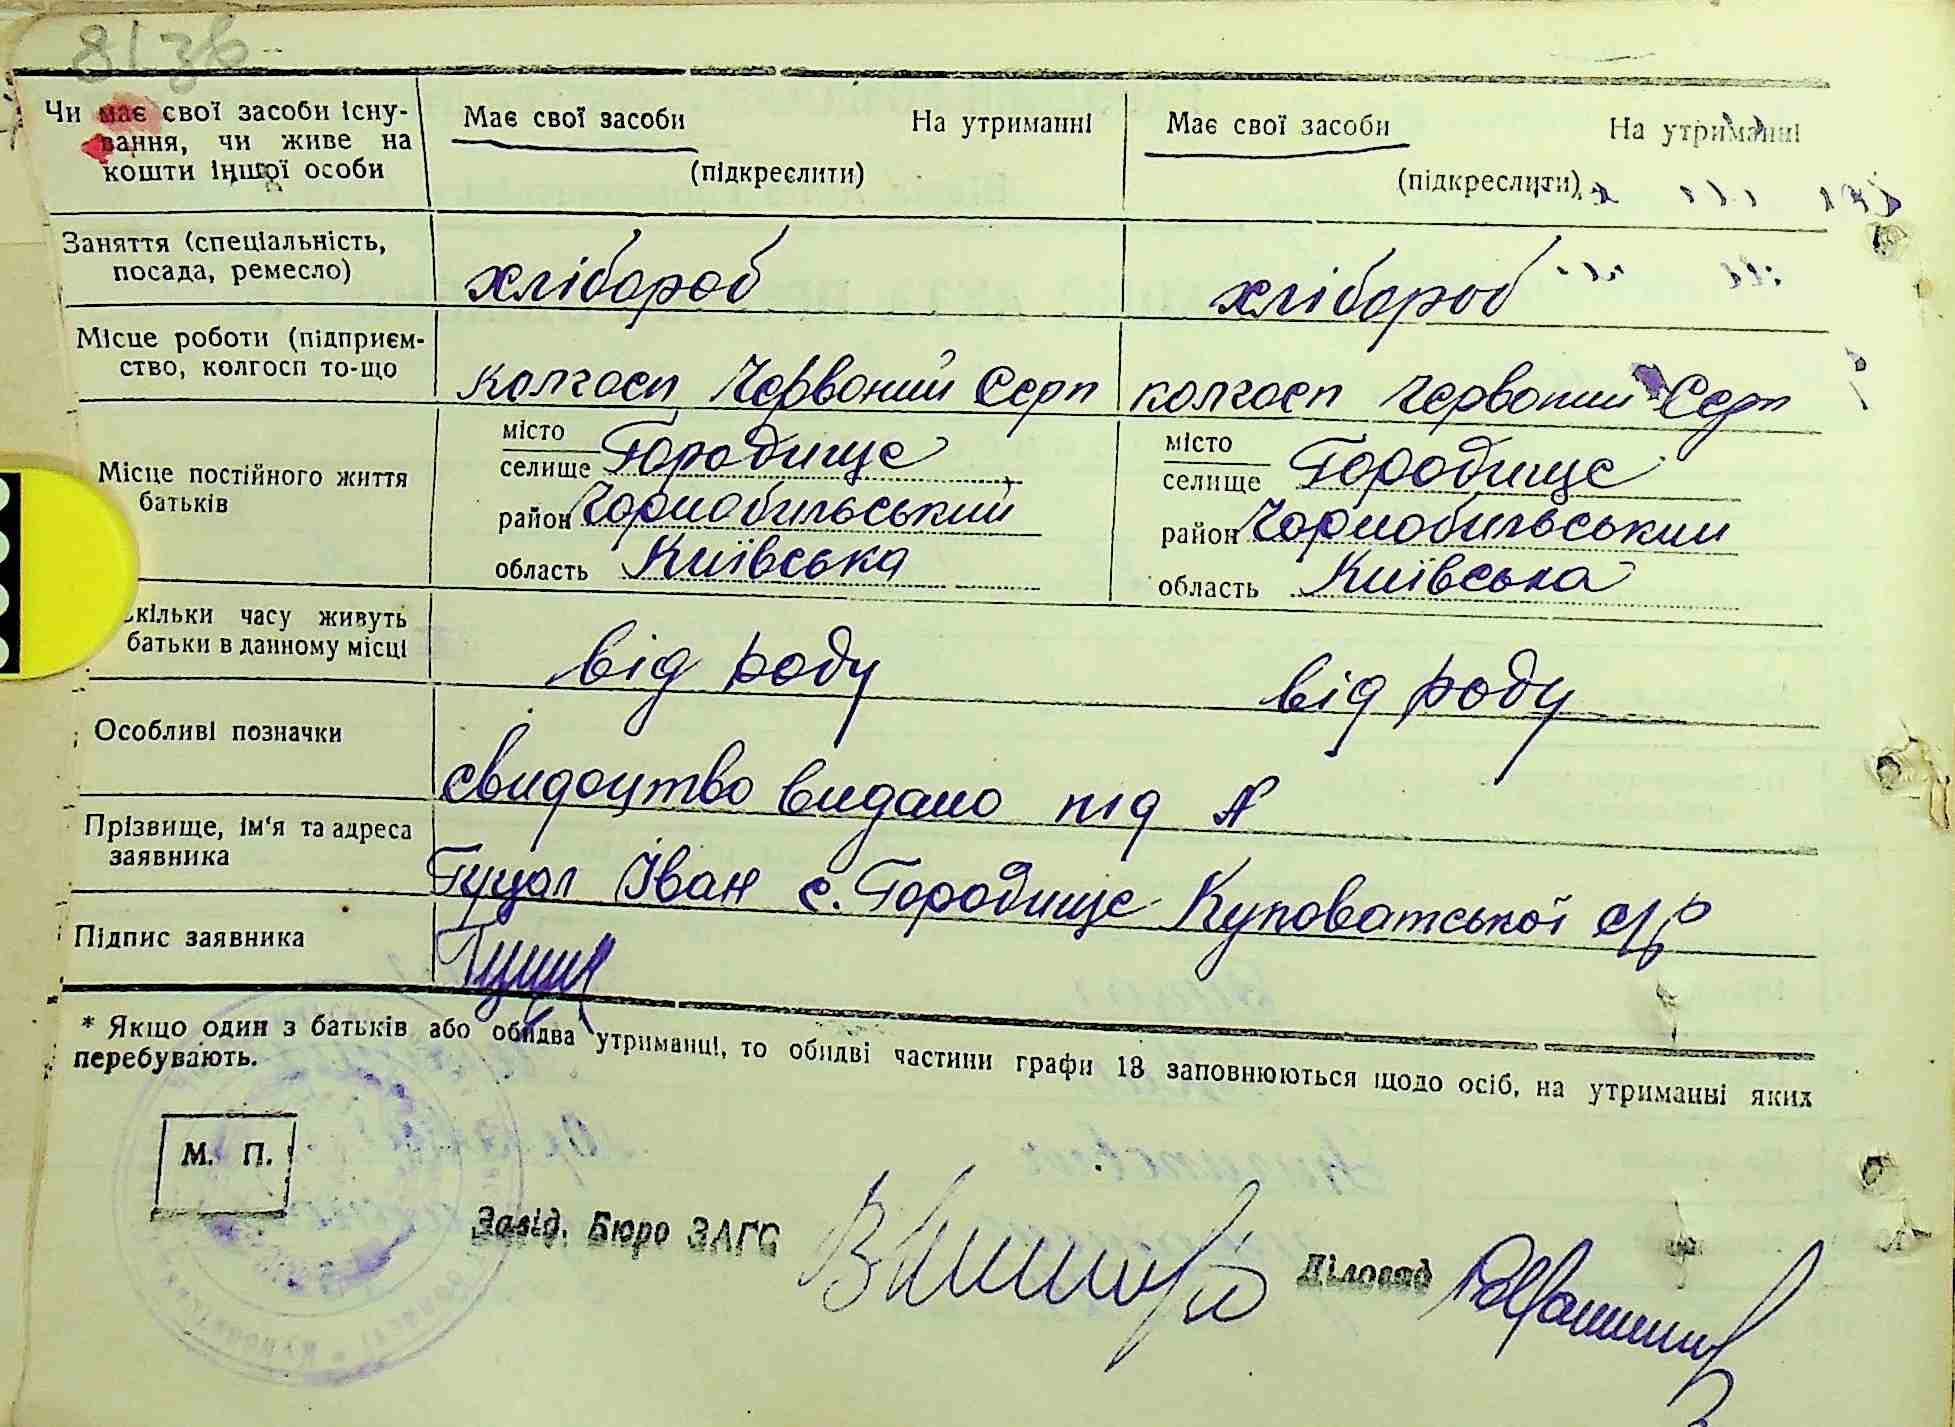 Чи має свої засоби існу-
вання, чи живе на
кошти іншої особи
Має свої засоби На утриманні
(підкреслити)
Має свої засоби На утриманні
(підкреслити)
Заняття (спеціальність,
посада, ремесло)
хлібороб хлібороб
Місце роботи (підприєм-
ство, колгосп то-що
колгосп Червоний Серп колгосп Червоний Серп
Місце постійного життя
батьків
місто
селище Городище
район Чорнобильський
область Київська
місто
селище Городище
район Чорнобильський
область Київська
Скільки часу живуть
батьки в данному місці
від роду від роду
Особливі позначки
свидоцтво видано під №
Прізвище, ім'я та адреса
заявника
Гуцол Іван с. Городище Куповатської с/р
Підпис заявника
* Якщо один з батьків або обидва утриманці, то обидві частини графи 13 заповнюються щодо осіб, на утриманні яких
перебувають.
М. П.
Завід. Бюро ЗАГС
Діловод